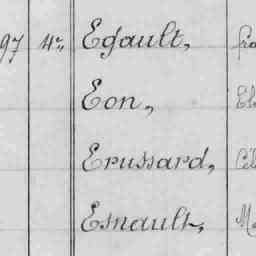 97 4e Egault,
Eon,
Erussard,
Esnault,